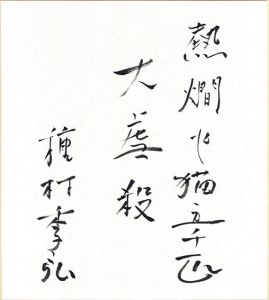 熱燗や猫五千匹
大虐殺
種村季弘